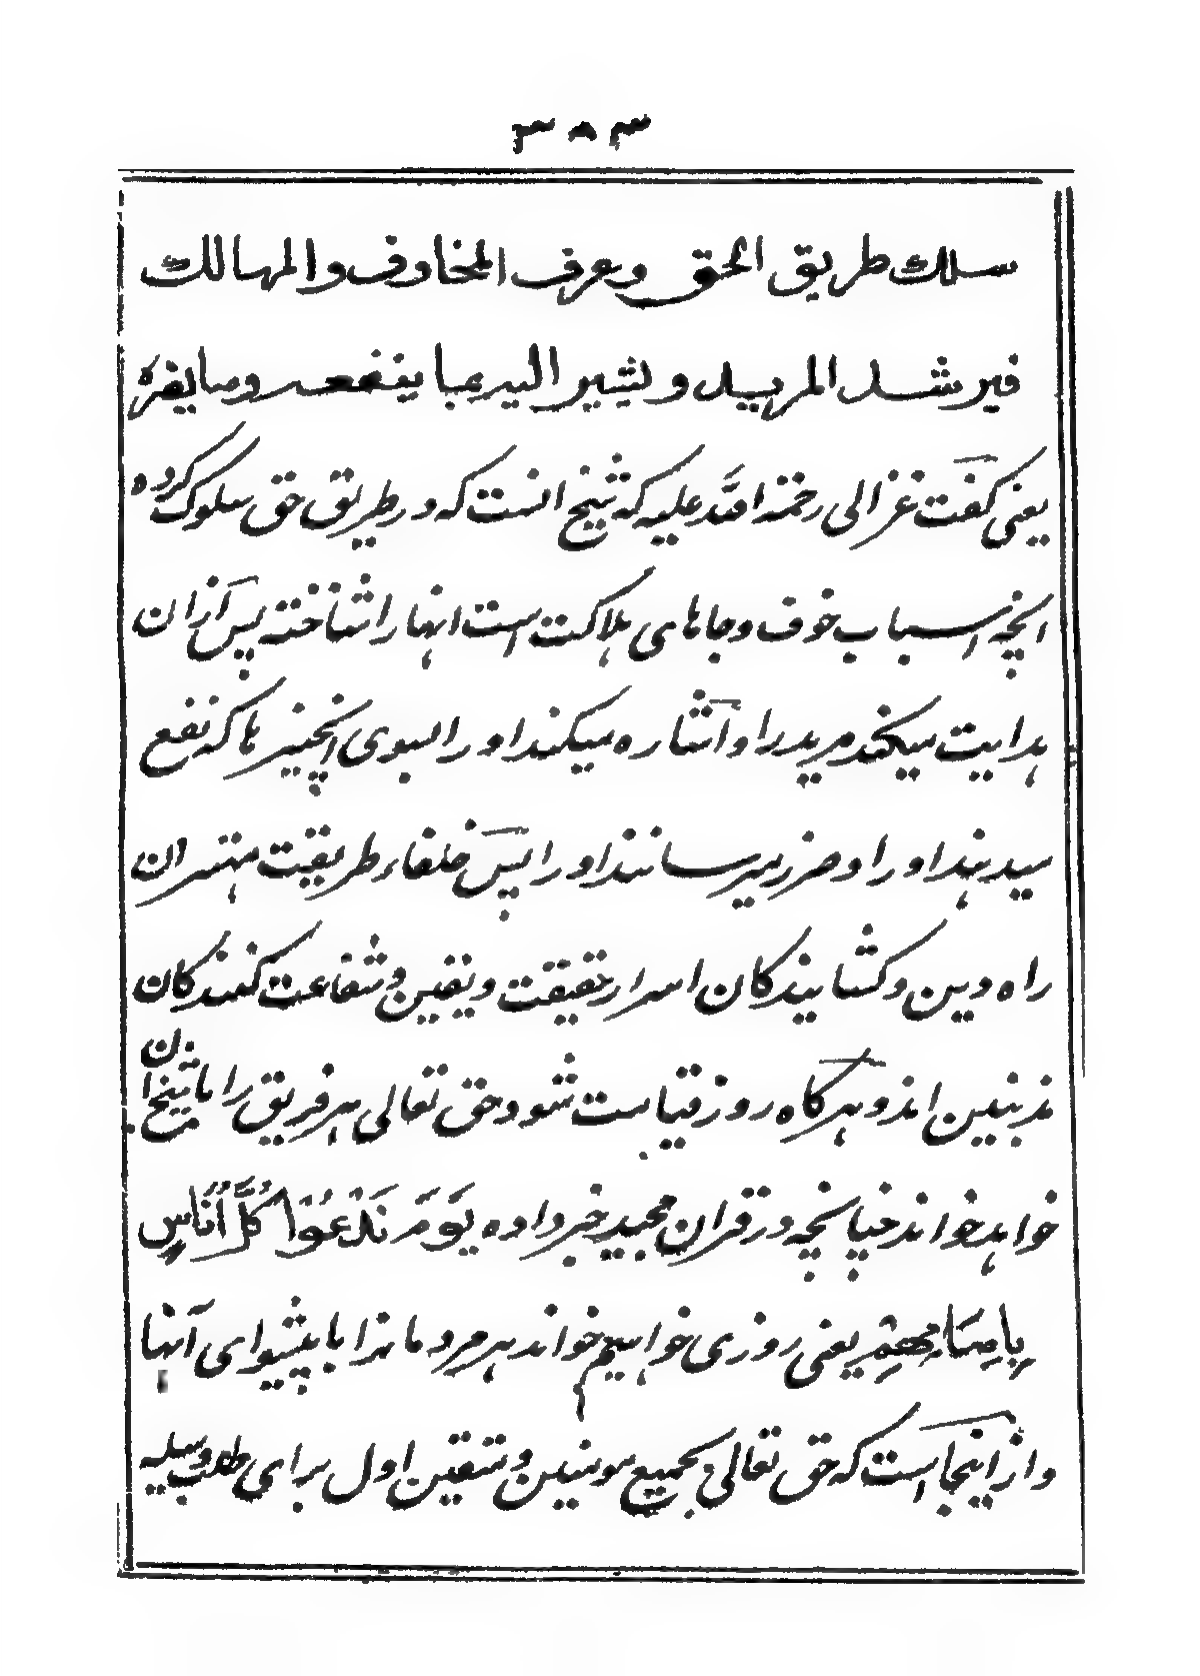 ۳۸۳
سلك طريق الحق وعرف المخاوف والمهالك
فيرشد المريد ويشير اليه بما ينفعه وما يضره
یعنی گفت غزالی رحمة الله علیه که شیخ انست که در طریق حق سلوک کرده
انچه اسباب خوف وجاهای هلاکت است انها را شناخته پس ازان
هدایت میکند مرید را و اشاره میکند او را بسوی انچیزها که نفع
میدهند او را و ضرر میرسانند او را پس خلفاء طریقت مهتران
راه دین و کشایندکان اسرار حقیقت و یقین و شفاعت کنندکان
مذنبین اند و هرکاه روز قیامت شود حق تعالی هر فریق را با شیخ ان
خواهد خواند چنانچه در قران مجید خبر داده يَوْمَ نَدْعُوا كُلَّ أُنَاسٍ
بِاِمَامِهِمْ یعنی روزی خواهیم خواند هر مردمانرا با پیشوای آنها
و از اینجاست که حق تعالی بجمیع مومنین و متقین اول برای طلب وسیله